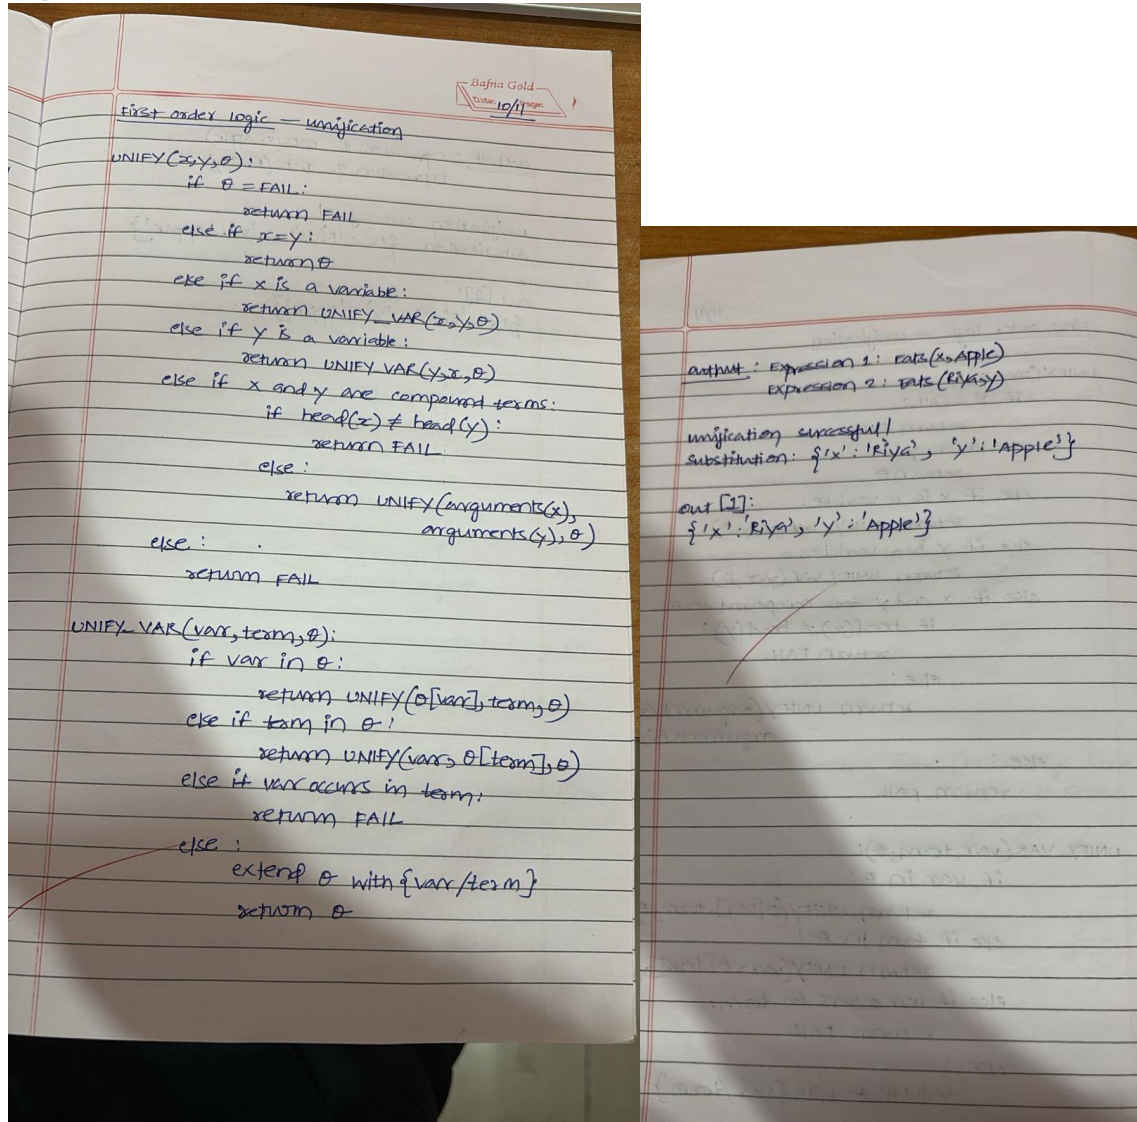 Bafna Gold
Date: 10/11 Page:
First order logic — unification
UNIFY(x,y,θ):
if θ = FAIL:
return FAIL
else if x=y:
return θ
else if x is a variable:
return UNIFY_VAR(x,y,θ)
else if y is a variable:
return UNIFY VAR(y,x,θ)
else if x and y are compound terms:
if head(x) ≠ head(y):
return FAIL
else:
return UNIFY(arguments(x),
arguments(y),θ)
else:
return FAIL
UNIFY_VAR(var,term,θ):
if var in θ:
return UNIFY(θ[var],term,θ)
else if term in θ:
return UNIFY(var, θ[term],θ)
else if var occurs in term:
return FAIL
else :
extend θ with {var/term}
return θ
output: Expression 1: Eats(x,Apple)
Expression 2: Eats(Riya,y)
unification successful!
substitution: {'x':'Riya', 'y':'Apple'}
out [1]:
{'x':'Riya', 'y':'Apple'}